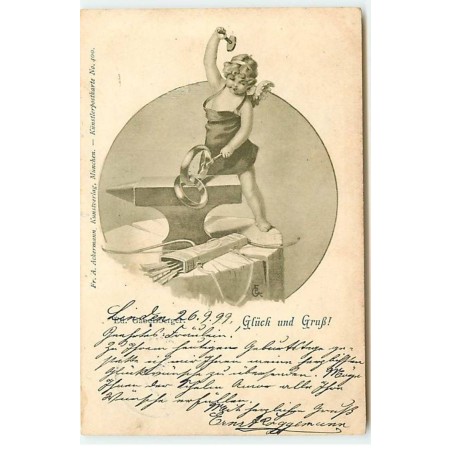 Fr. A. Ackermann, Kunstverlag, München. — Künstlerpostkarte No. 400.
Glück und Gruß!
Linden 26.9.99.
Geehrtes Fräulein.
Zu Ihrem heutigen Geburtstage
ich mir Ihnen meinen herzlichsten
Glückwunsch zu übersenden. Möge
Ihnen der Amor alle Ihre
Wünsche erfüllen.
Mit herzlichem Gruß
Ernst Roggemann